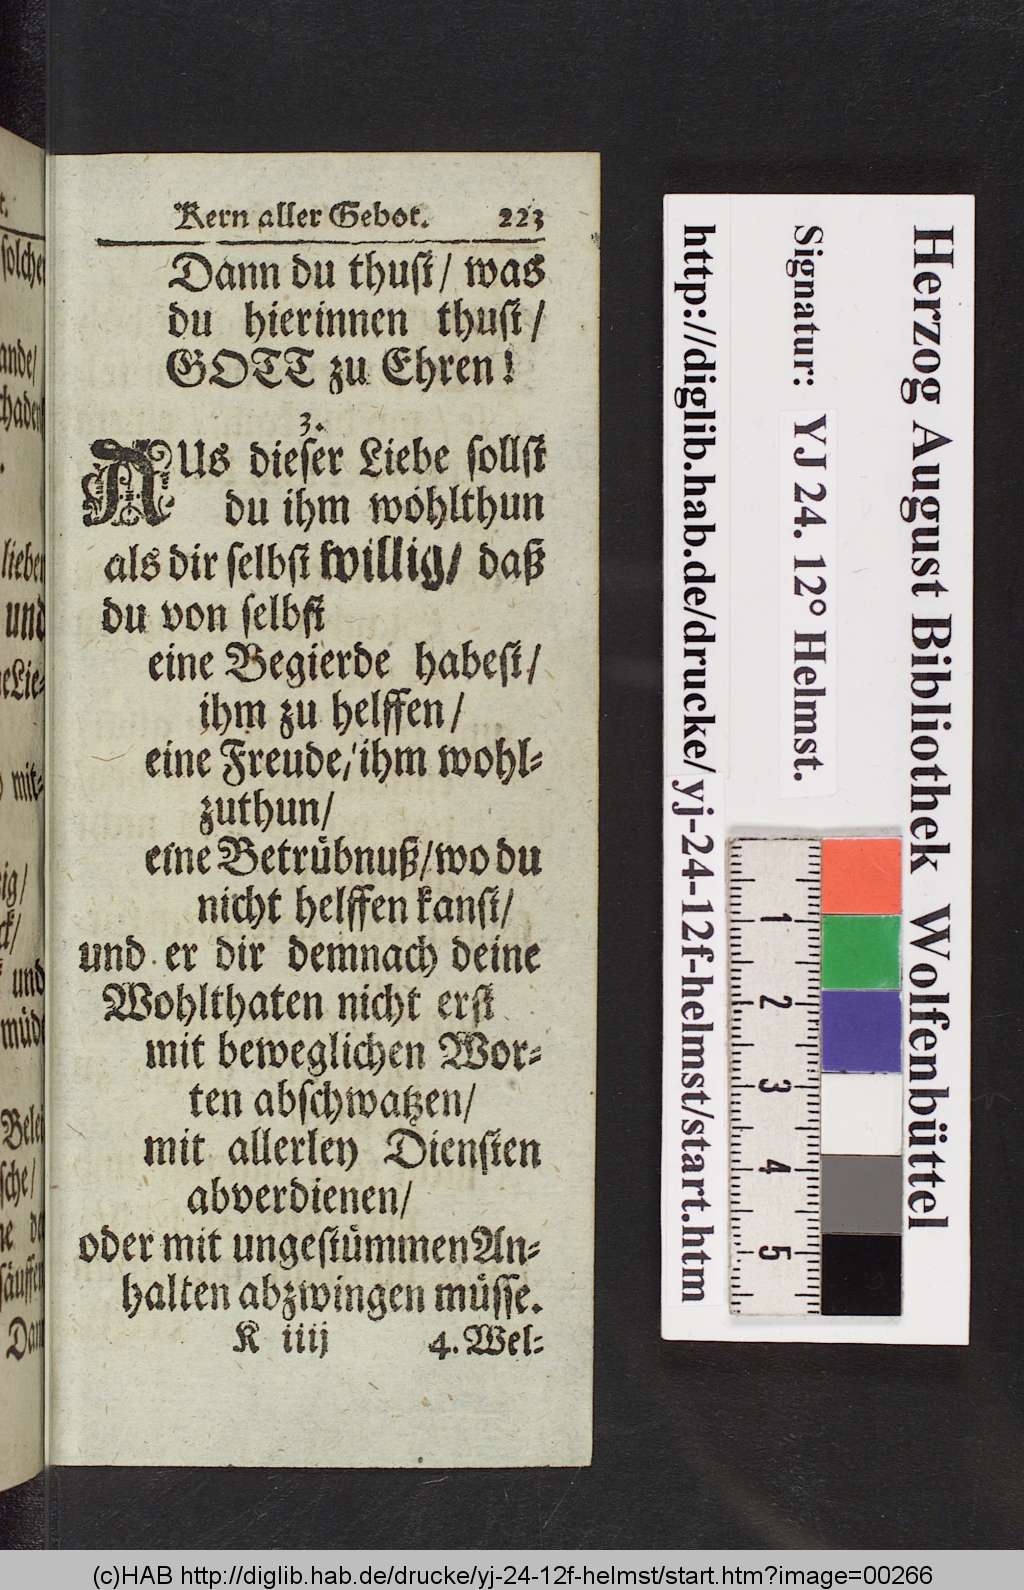 Kern aller Gebot. 223
Dann du thust / was
du hierinnen thust /
GOTT zu Ehren!
3.
AUs dieser Liebe sollst
du ihm wohlthun
als dir selbst willig / daß
du von selbst
eine Begierde habest /
ihm zu helffen /
eine Freude / ihm wohl-
zuthun /
eine Betrübnuß / wo du
nicht helffen kanst /
und er dir demnach deine
Wohlthaten nicht erst
mit beweglichen Wor-
ten abschwatzen /
mit allerley Diensten
abverdienen /
oder mit ungestümmen An-
halten abzwingen müsse.
K iiij 4. Wel-
solche
ande /
lieben
und
mit-
und
Herzog August Bibliothek Wolfenbüttel
Signatur: YJ 24. 12° Helmst.
http://diglib.hab.de/drucke/yj-24-12f-helmst/start.htm
1
2
3
4
5
(c)HAB http://diglib.hab.de/drucke/yj-24-12f-helmst/start.htm?image=00266